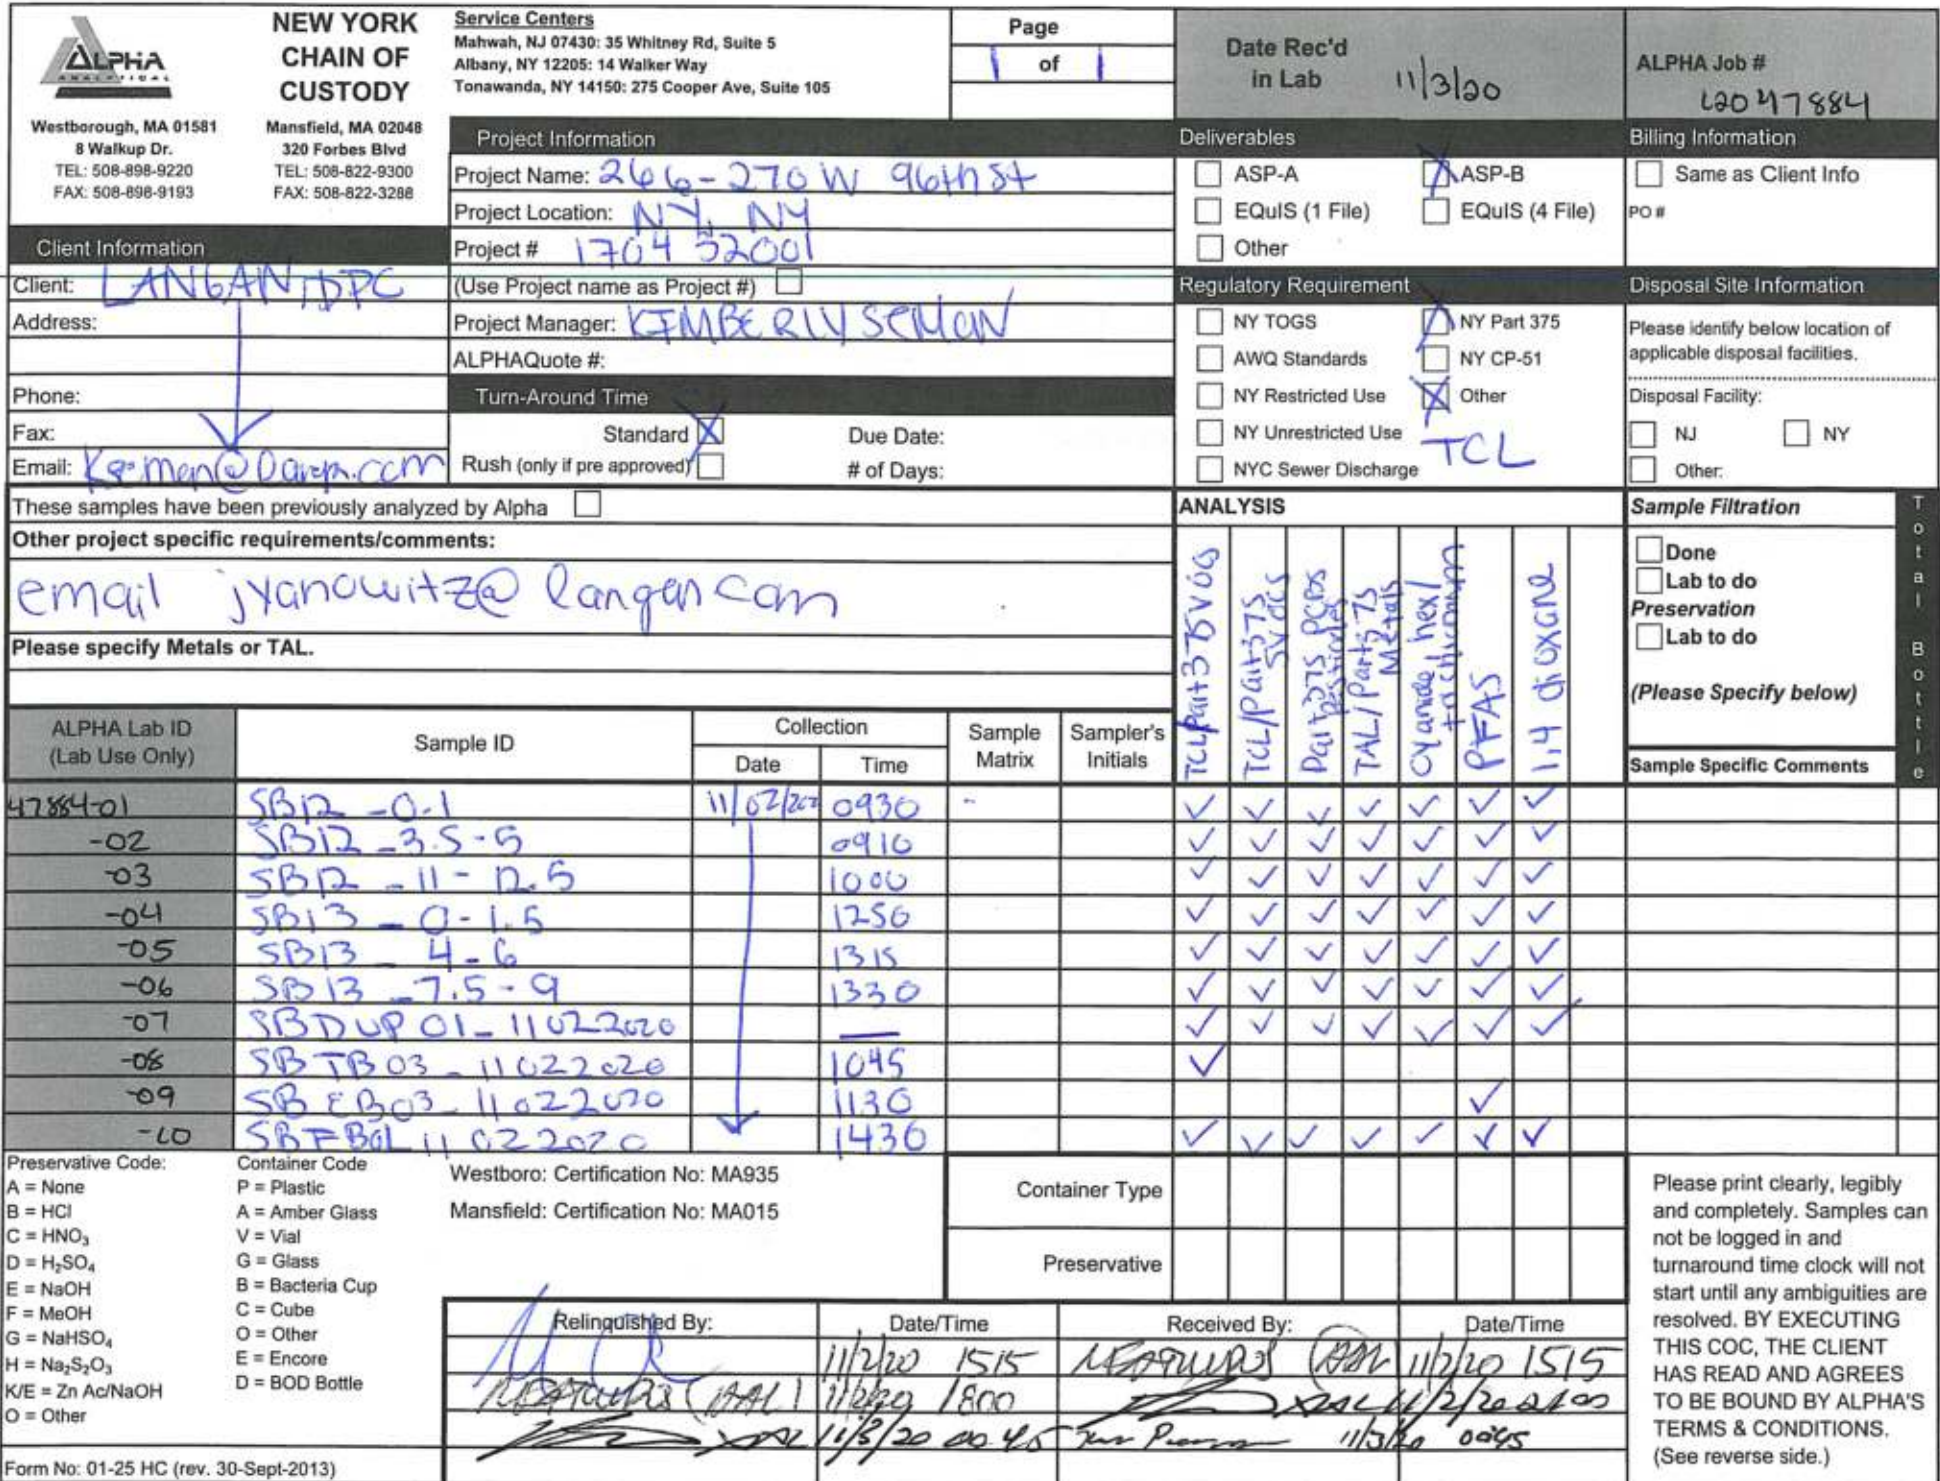 ALPHA
ANALYTICAL
Westborough, MA 01581
8 Walkup Dr.
TEL: 508-898-9220
FAX: 508-898-9193
NEW YORK
CHAIN OF
CUSTODY
Mansfield, MA 02048
320 Forbes Blvd
TEL: 508-822-9300
FAX: 508-822-3288
Service Centers
Mahwah, NJ 07430: 35 Whitney Rd, Suite 5
Albany, NY 12205: 14 Walker Way
Tonawanda, NY 14150: 275 Cooper Ave, Suite 105
Page
1 of 1
Date Rec'd
in Lab 11/3/20
ALPHA Job #
L2047884
Client Information
Client: LANGAN, DPC
Address:
Phone:
Fax:
Email:
Project Information
Project Name: 266-270 W 96th St
Project Location: NY, NY
Project # 170432001
(Use Project name as Project #)
Project Manager: KIMBERLY SEMON
ALPHAQuote #:
Turn-Around Time
Standard X Due Date:
Rush (only if pre approved) # of Days:
Deliverables
ASP-A X ASP-B
EQuIS (1 File) EQuIS (4 File)
Other
Regulatory Requirement
NY TOGS NY Part 375
AWQ Standards NY CP-51
NY Restricted Use X Other
NY Unrestricted Use TCL
NYC Sewer Discharge
Billing Information
Same as Client Info
PO #
Disposal Site Information
Please identify below location of
applicable disposal facilities.
Disposal Facility:
NJ NY
Other:
These samples have been previously analyzed by Alpha
Other project specific requirements/comments:
email jyanowitz@langan.com
Please specify Metals or TAL.
ANALYSIS
TCL/Part 375 VOCs
TCL/Part 375 SVOCs
Part 375 PCBs pesticides
TAL/Part 375 Metals
Cyanide, hex/ trichromium
PFAS
1,4 dioxane
Sample Filtration
Done
Lab to do
Preservation
Lab to do
(Please Specify below)
Total Bottle
ALPHA Lab ID
(Lab Use Only)
Sample ID
Collection
Date Time
Sample
Matrix
Sampler's
Initials
Sample Specific Comments
47884-01 SB12_0-1 11/02/202 0930 ✓ ✓ ✓ ✓ ✓ ✓ ✓
-02 SB12_3.5-5 0910 ✓ ✓ ✓ ✓ ✓ ✓ ✓
-03 SB12_11-12.5 1000 ✓ ✓ ✓ ✓ ✓ ✓ ✓
-04 SB13_0-1.5 1250 ✓ ✓ ✓ ✓ ✓ ✓ ✓
-05 SB13_4-6 1315 ✓ ✓ ✓ ✓ ✓ ✓ ✓
-06 SB13_7.5-9 1330 ✓ ✓ ✓ ✓ ✓ ✓ ✓
-07 SBDUP01_11022020 — ✓ ✓ ✓ ✓ ✓ ✓ ✓
-08 SBTB03_11022020 1045 ✓
-09 SBEB03_11022020 1130 ✓
-10 SBFB01_11022020 1430 ✓ ✓ ✓ ✓ ✓ ✓ ✓
Preservative Code:
A = None
B = HCl
C = HNO₃
D = H₂SO₄
E = NaOH
F = MeOH
G = NaHSO₄
H = Na₂S₂O₃
K/E = Zn Ac/NaOH
O = Other
Container Code
P = Plastic
A = Amber Glass
V = Vial
G = Glass
B = Bacteria Cup
C = Cube
O = Other
E = Encore
D = BOD Bottle
Westboro: Certification No: MA935
Mansfield: Certification No: MA015
Container Type
Preservative
Relinquished By: Date/Time Received By: Date/Time
11/2/20 1515 (AAL) 11/2/20 1515
(AAL) 11/2/20 1800 AAL 11/2/20
AAL 11/3/20 00:45 11/3/20 0045
Please print clearly, legibly
and completely. Samples can
not be logged in and
turnaround time clock will not
start until any ambiguities are
resolved. BY EXECUTING
THIS COC, THE CLIENT
HAS READ AND AGREES
TO BE BOUND BY ALPHA'S
TERMS & CONDITIONS.
(See reverse side.)
Form No: 01-25 HC (rev. 30-Sept-2013)